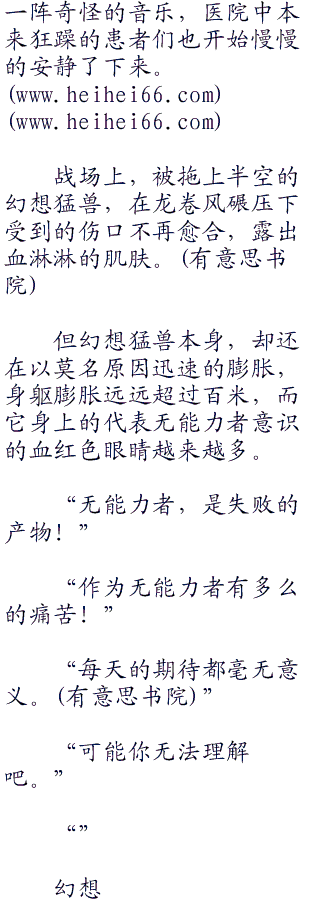 一阵奇怪的音乐，医院中本
来狂躁的患者们也开始慢慢
的安静了下来。
(www.heihei66.com)
(www.heihei66.com)
战场上，被拖上半空的
幻想猛兽，在龙卷风碾压下
受到的伤口不再愈合，露出
血淋淋的肌肤。(有意思书
院)
但幻想猛兽本身，却还
在以莫名原因迅速的膨胀，
身躯膨胀远远超过百米，而
它身上的代表无能力者意识
的血红色眼睛越来越多。
“无能力者，是失败的
产物！”
“作为无能力者有多么
的痛苦！”
“每天的期待都毫无意
义。(有意思书院)”
“可能你无法理解
吧。”
“”
幻想